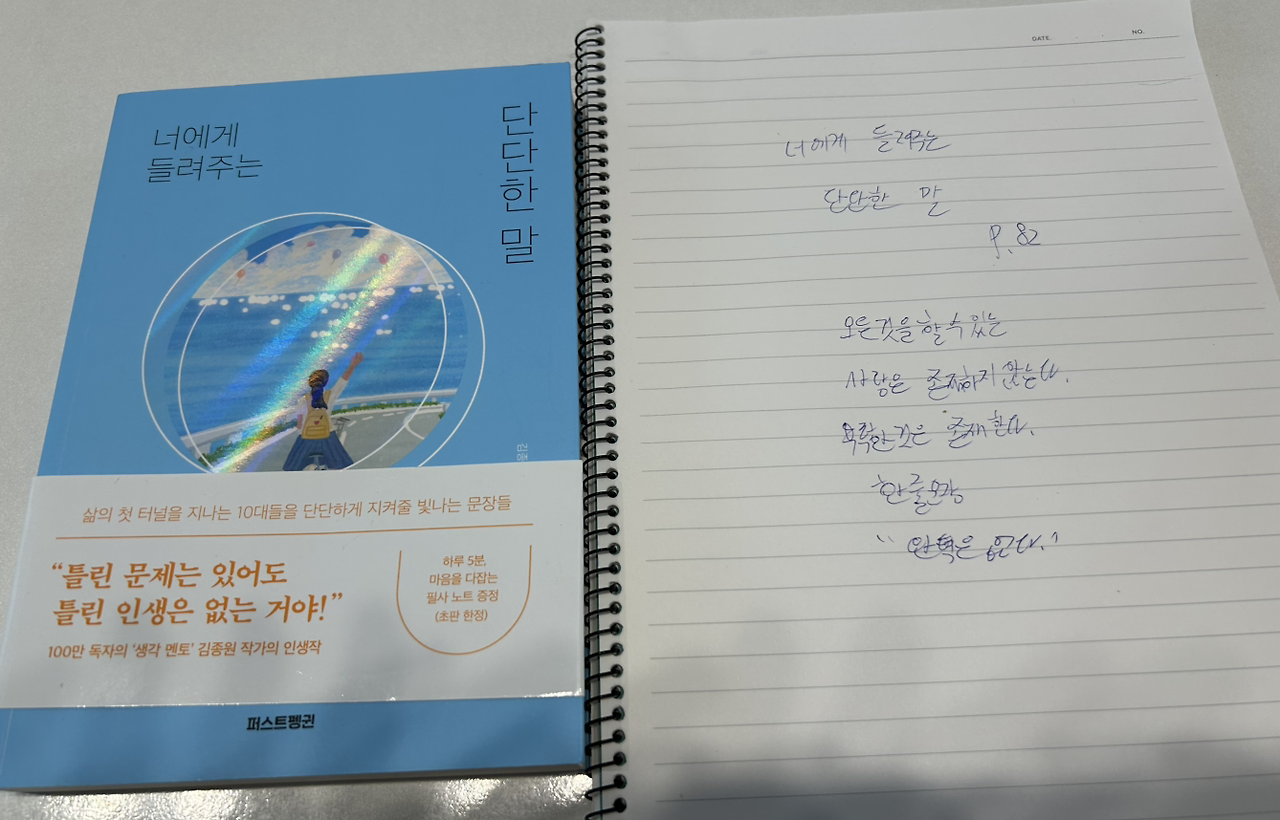 너에게
들려주는
단단한 말
김종
삶의 첫 터널을 지나는 10대들을 단단하게 지켜줄 빛나는 문장들
“틀린 문제는 있어도
틀린 인생은 없는 거야!”
100만 독자의 ‘생각 멘토’ 김종원 작가의 인생작
하루 5분,
마음을 다잡는
필사 노트 증정
(초판 한정)
퍼스트펭귄
DATE. NO.
너에게 들려주는
단단한 말
P. 82
모든것을 할 수 있는
사람은 존재하지 않는다.
것은 존재한다.
한 줄 문장
은 없다."